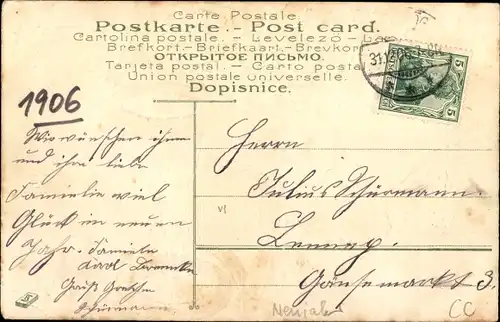 Carte Postale.
Postkarte.-Post card.
Cartolina postale. - Levelezö - La
Brefkort.-Briefkaart.-Brevkor
ОТКРЫТОЕ ПИСЬМО.
Tarjeta postal. - Carto postal
Union postale universelle.
Dopisnice.
31.12.06
5 5
1906
Wir wünschen ihnen
und ihre liebe
Familie viel
Glück im neuen
Jahr. Familie
Karl
Gruß Grethe
Schürmann
Herrn
Julius Schürmann.
Lennep.
Gänsemarkt 3.
VI
Neujahr
CC